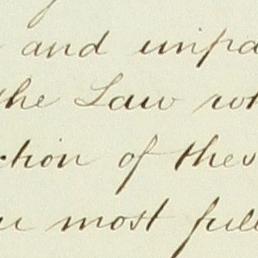 and unpa
the Law wh
ction of thes
most full